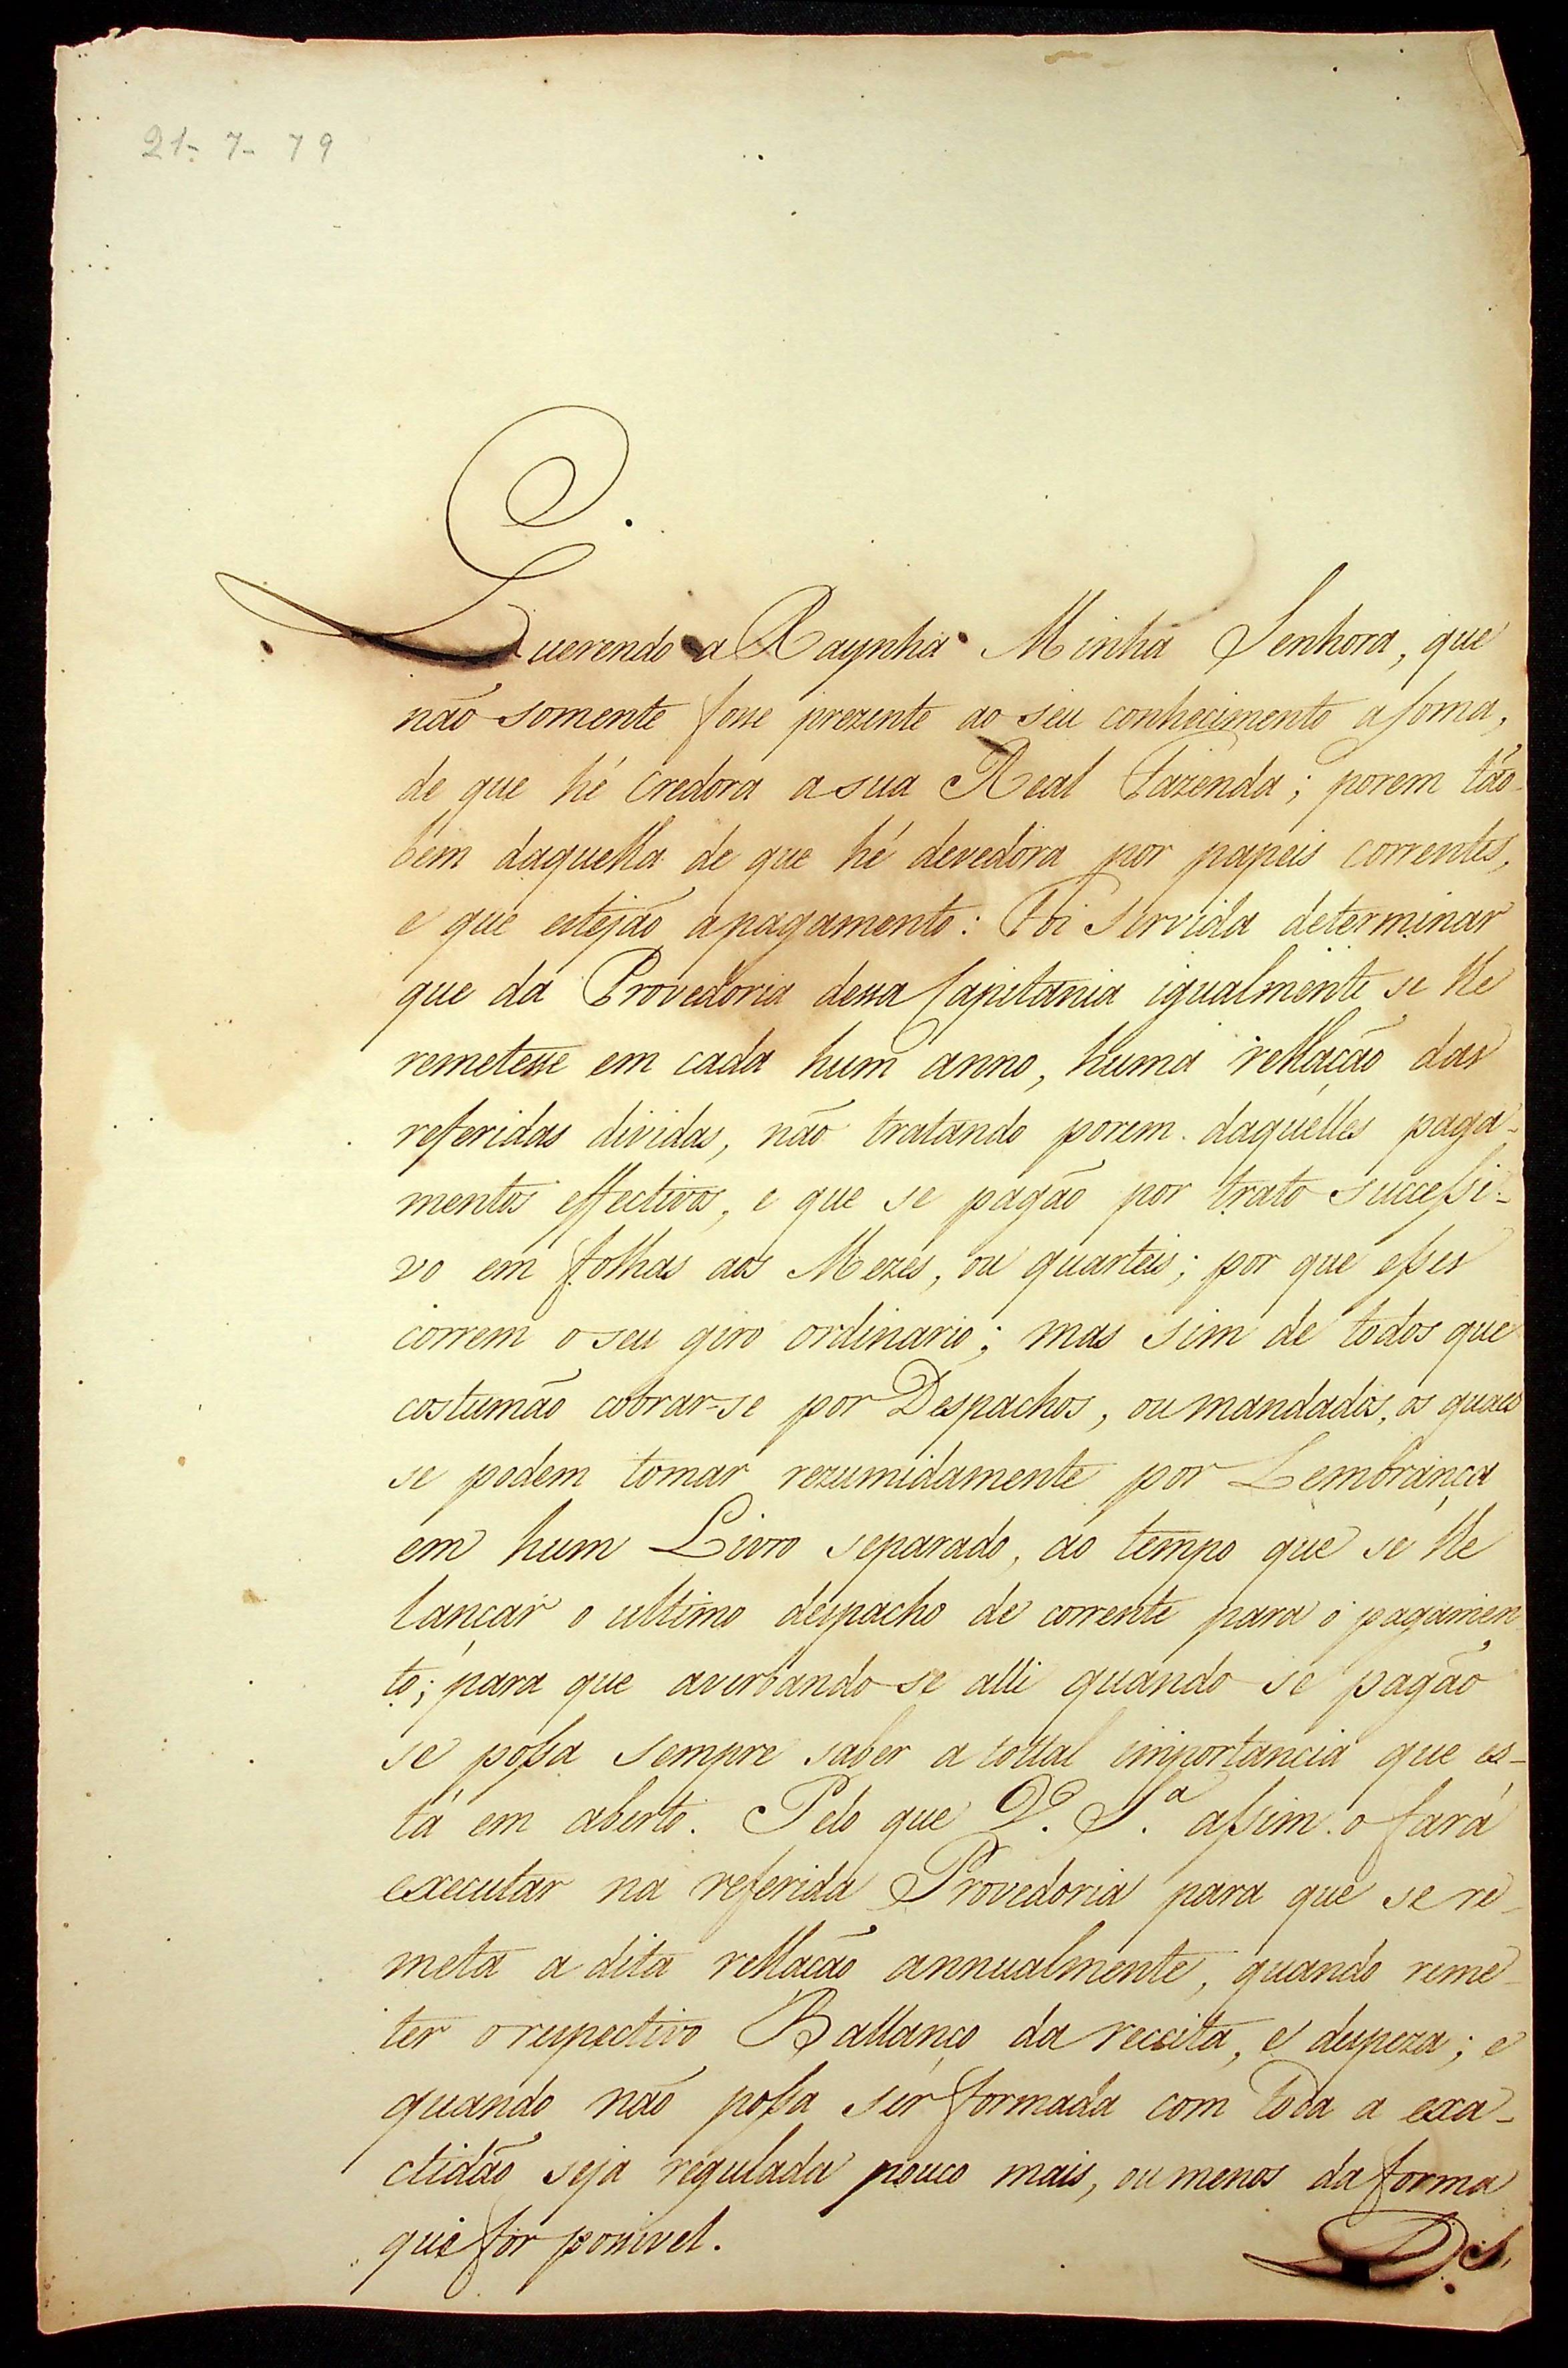 21-7-79
Querendo a Raynha Minha Senhora, que
não somente fosse prezente ao seu conhecimento a soma,
de que hé credora a sua Real Fazenda; porem tão
bem daquella de que hé devedora por papeis correntes,
e que estejão a pagamento: Foi servida determinar
que da Provedoria dessa Capitania igualmente se lhe
remetesse em cada hum anno, huma rellação das
referidas dividas, não tratando porem daquelles paga-
mentos effectivos, e que se pagão por trato successi-
vo em folhas aos Mezes, ou quarteis; por que esses
correm o seu giro ordinario; mas sim de todos que
costumão cobrar-se por Despachos, ou mandados, os quaes
se podem tomar rezumidamente por Lembrança
em hum Livro separado, ao tempo que se lhe
lançar o ultimo despacho de corrente para o pagamen
to; para que averbando-se alli quando se pagão
se possa sempre saber a tottal importancia que es-
tá em aberto. Pelo que V. S.ª assim o fará
executar na referida Provedoria para que se re-
meta a dita rellação annualmente, quando reme-
ter o respectivo Ballanço da receita, e despeza; e
quando não possa ser formada com toda a exa-
ctidão seja regulada pouco mais, ou menos da forma
que for possivel.
Ds.